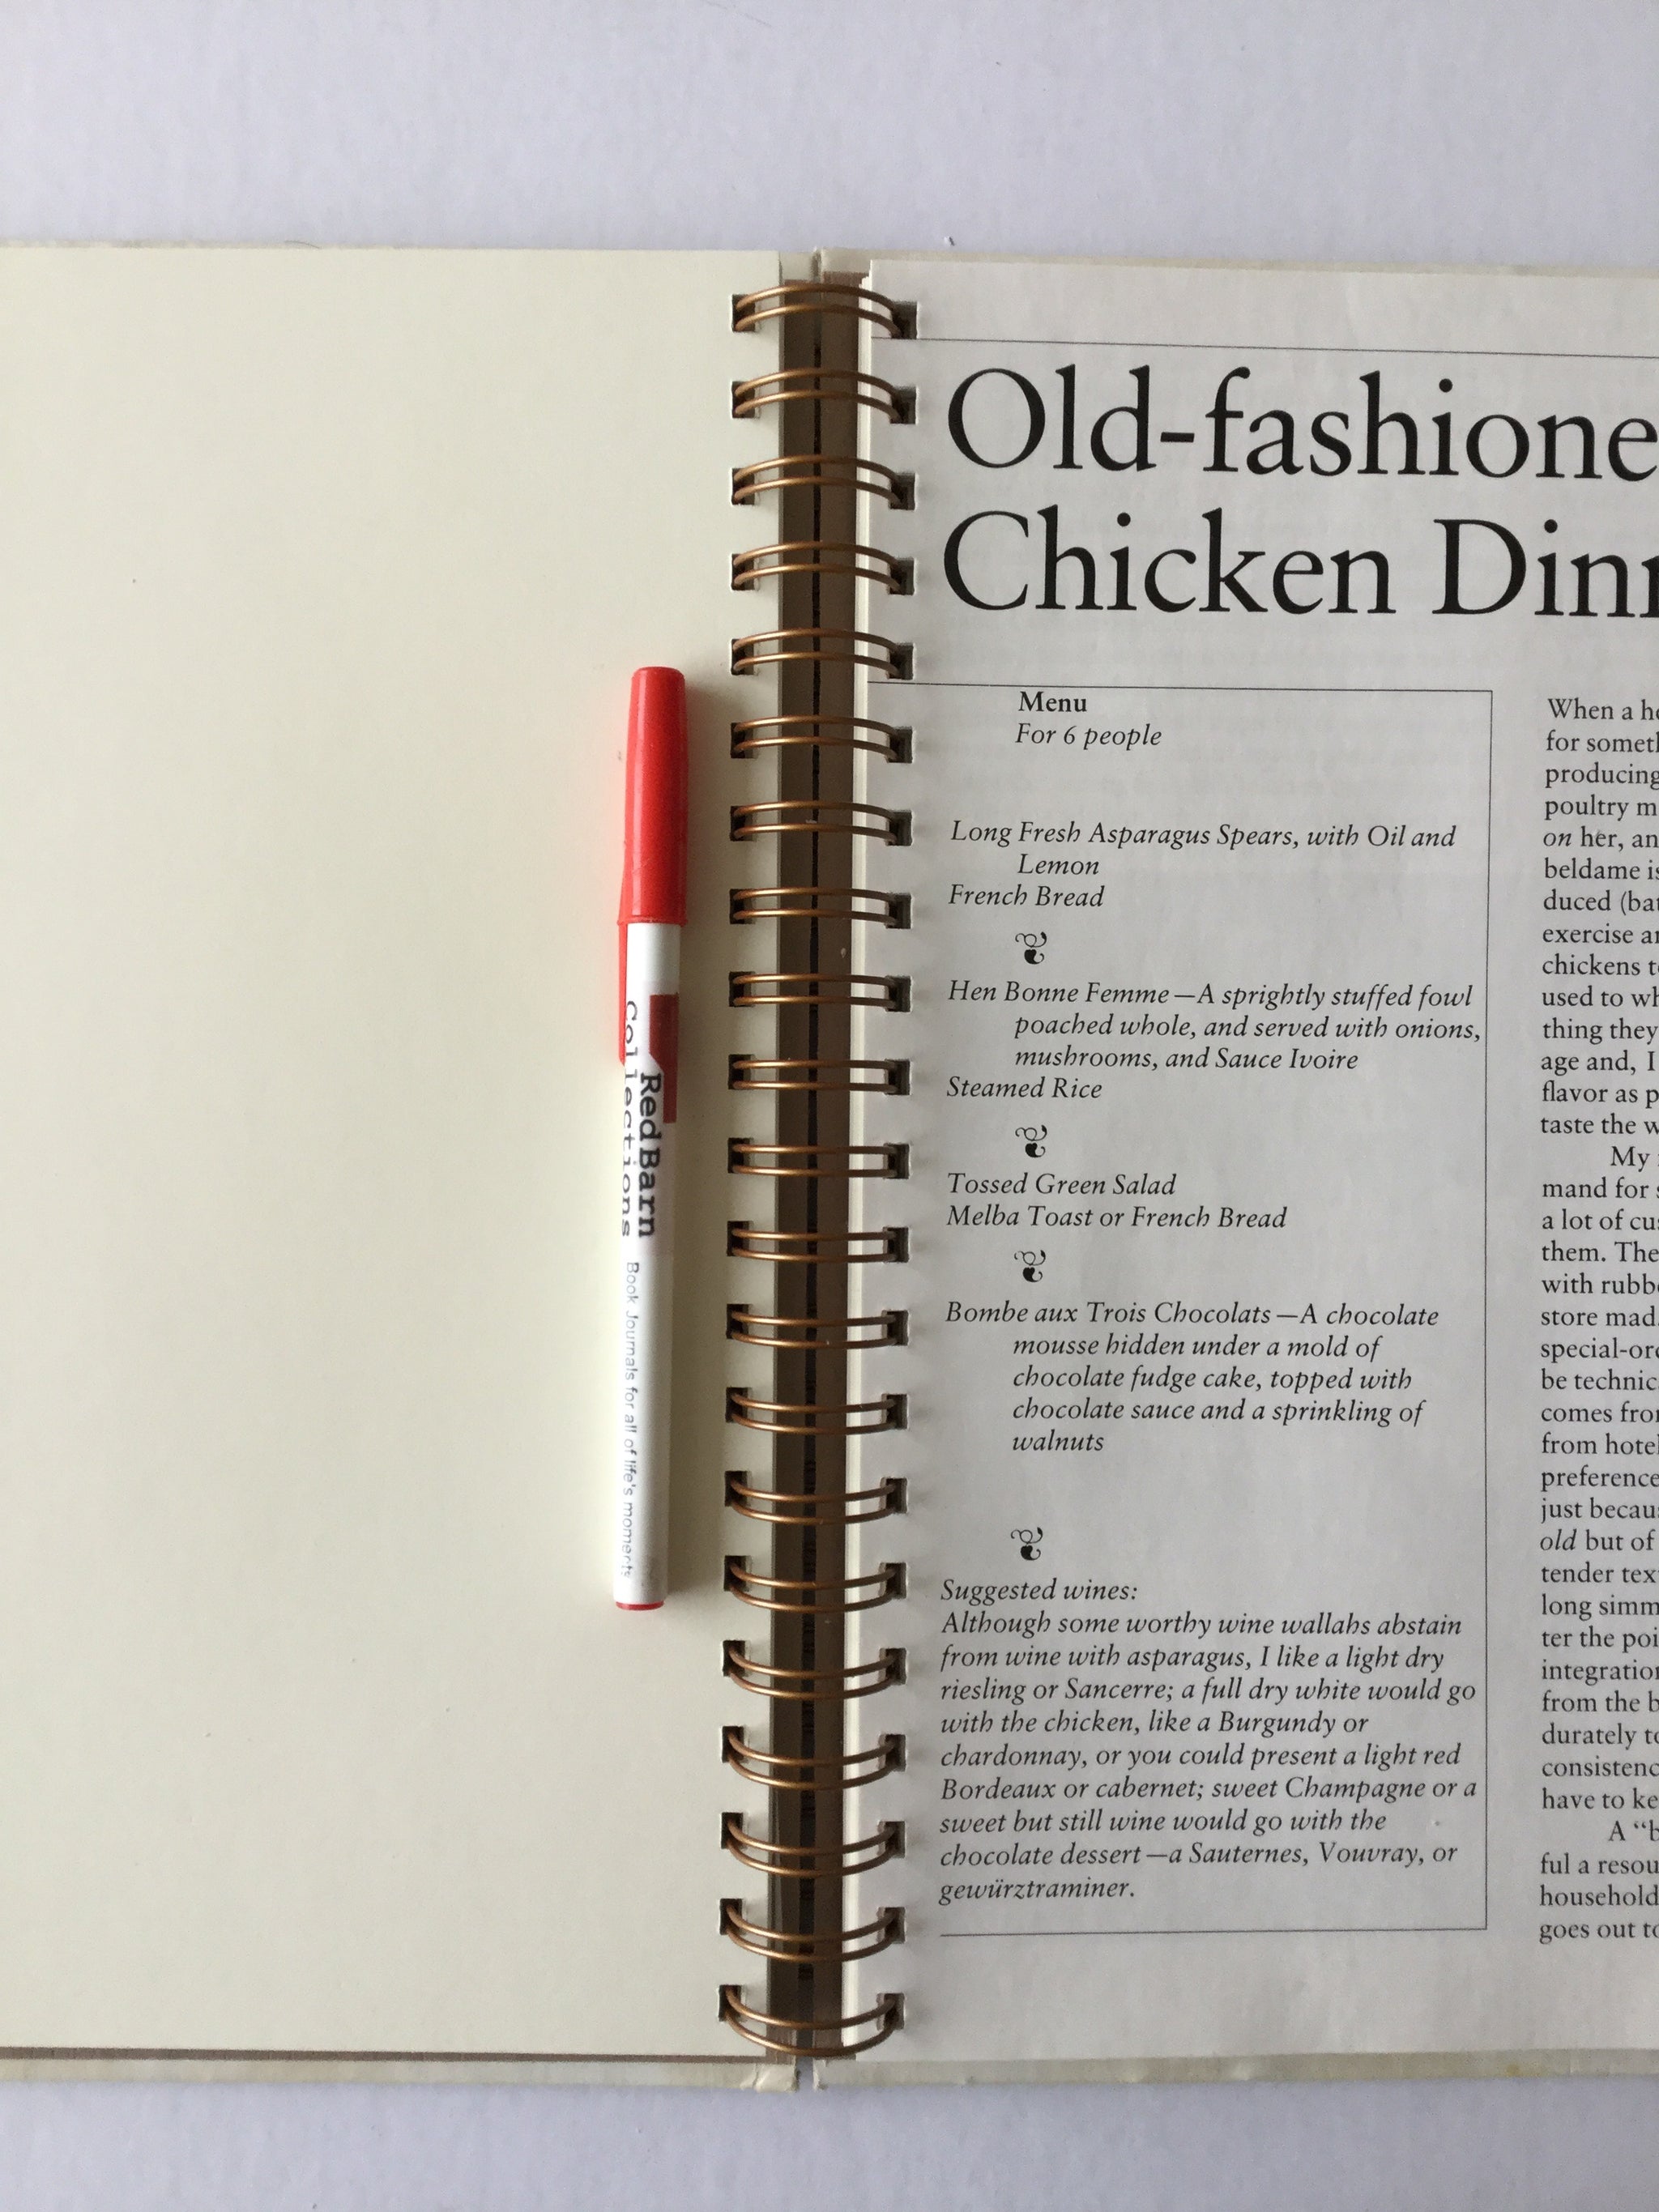 Old-fashione
Chicken Din
Menu
For 6 people
Long Fresh Asparagus Spears, with Oil and
Lemon
French Bread
Hen Bonne Femme—A sprightly stuffed fowl
poached whole, and served with onions,
mushrooms, and Sauce Ivoire
Steamed Rice
Tossed Green Salad
Melba Toast or French Bread
Bombe aux Trois Chocolats—A chocolate
mousse hidden under a mold of
chocolate fudge cake, topped with
chocolate sauce and a sprinkling of
walnuts
Suggested wines:
Although some worthy wine wallahs abstain
from wine with asparagus, I like a light dry
riesling or Sancerre; a full dry white would go
with the chicken, like a Burgundy or
chardonnay, or you could present a light red
Bordeaux or cabernet; sweet Champagne or a
sweet but still wine would go with the
chocolate dessert—a Sauternes, Vouvray, or
gewürztraminer.
When a h
for somet
producing
poultry m
on her, an
beldame is
duced (bat
exercise a
chickens t
used to w
thing they
age and, I
flavor as p
taste the w
My
mand for
a lot of cu
them. The
with rubb
store mad
special-or
be technic
comes fro
from hote
preference
just becau
old but of
tender tex
long simm
ter the poi
integration
from the b
durately to
consistenc
have to ke
A “b
ful a resou
household
goes out to
RedBarn
Collections
Book Journals for all of life's moments